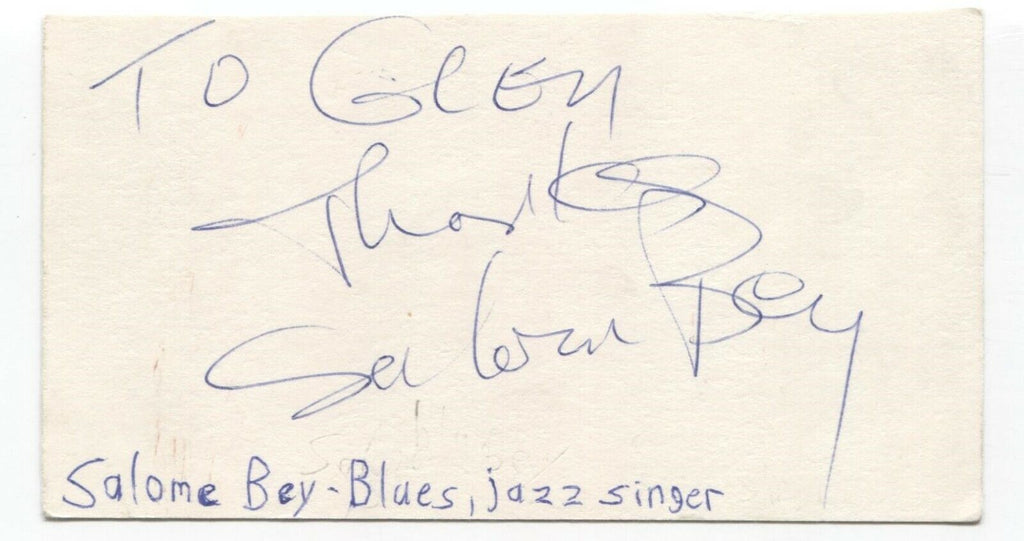 TO GLEN
Thanks
Salome Bey
Salome Bey-Blues, jazz singer